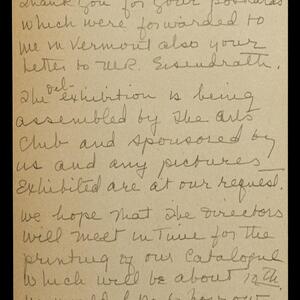 Thank you for your postcards
which were forwarded to
me in Vermont also your
letter to Mr. Eisendrath.
The oil exhibition is being
assembled by the Arts
Club and sponsored by
us and any pictures
Exhibited are at our request.
We hope that the Directors
will meet in time for the
printing of our Catalogue
which will be about 12th.